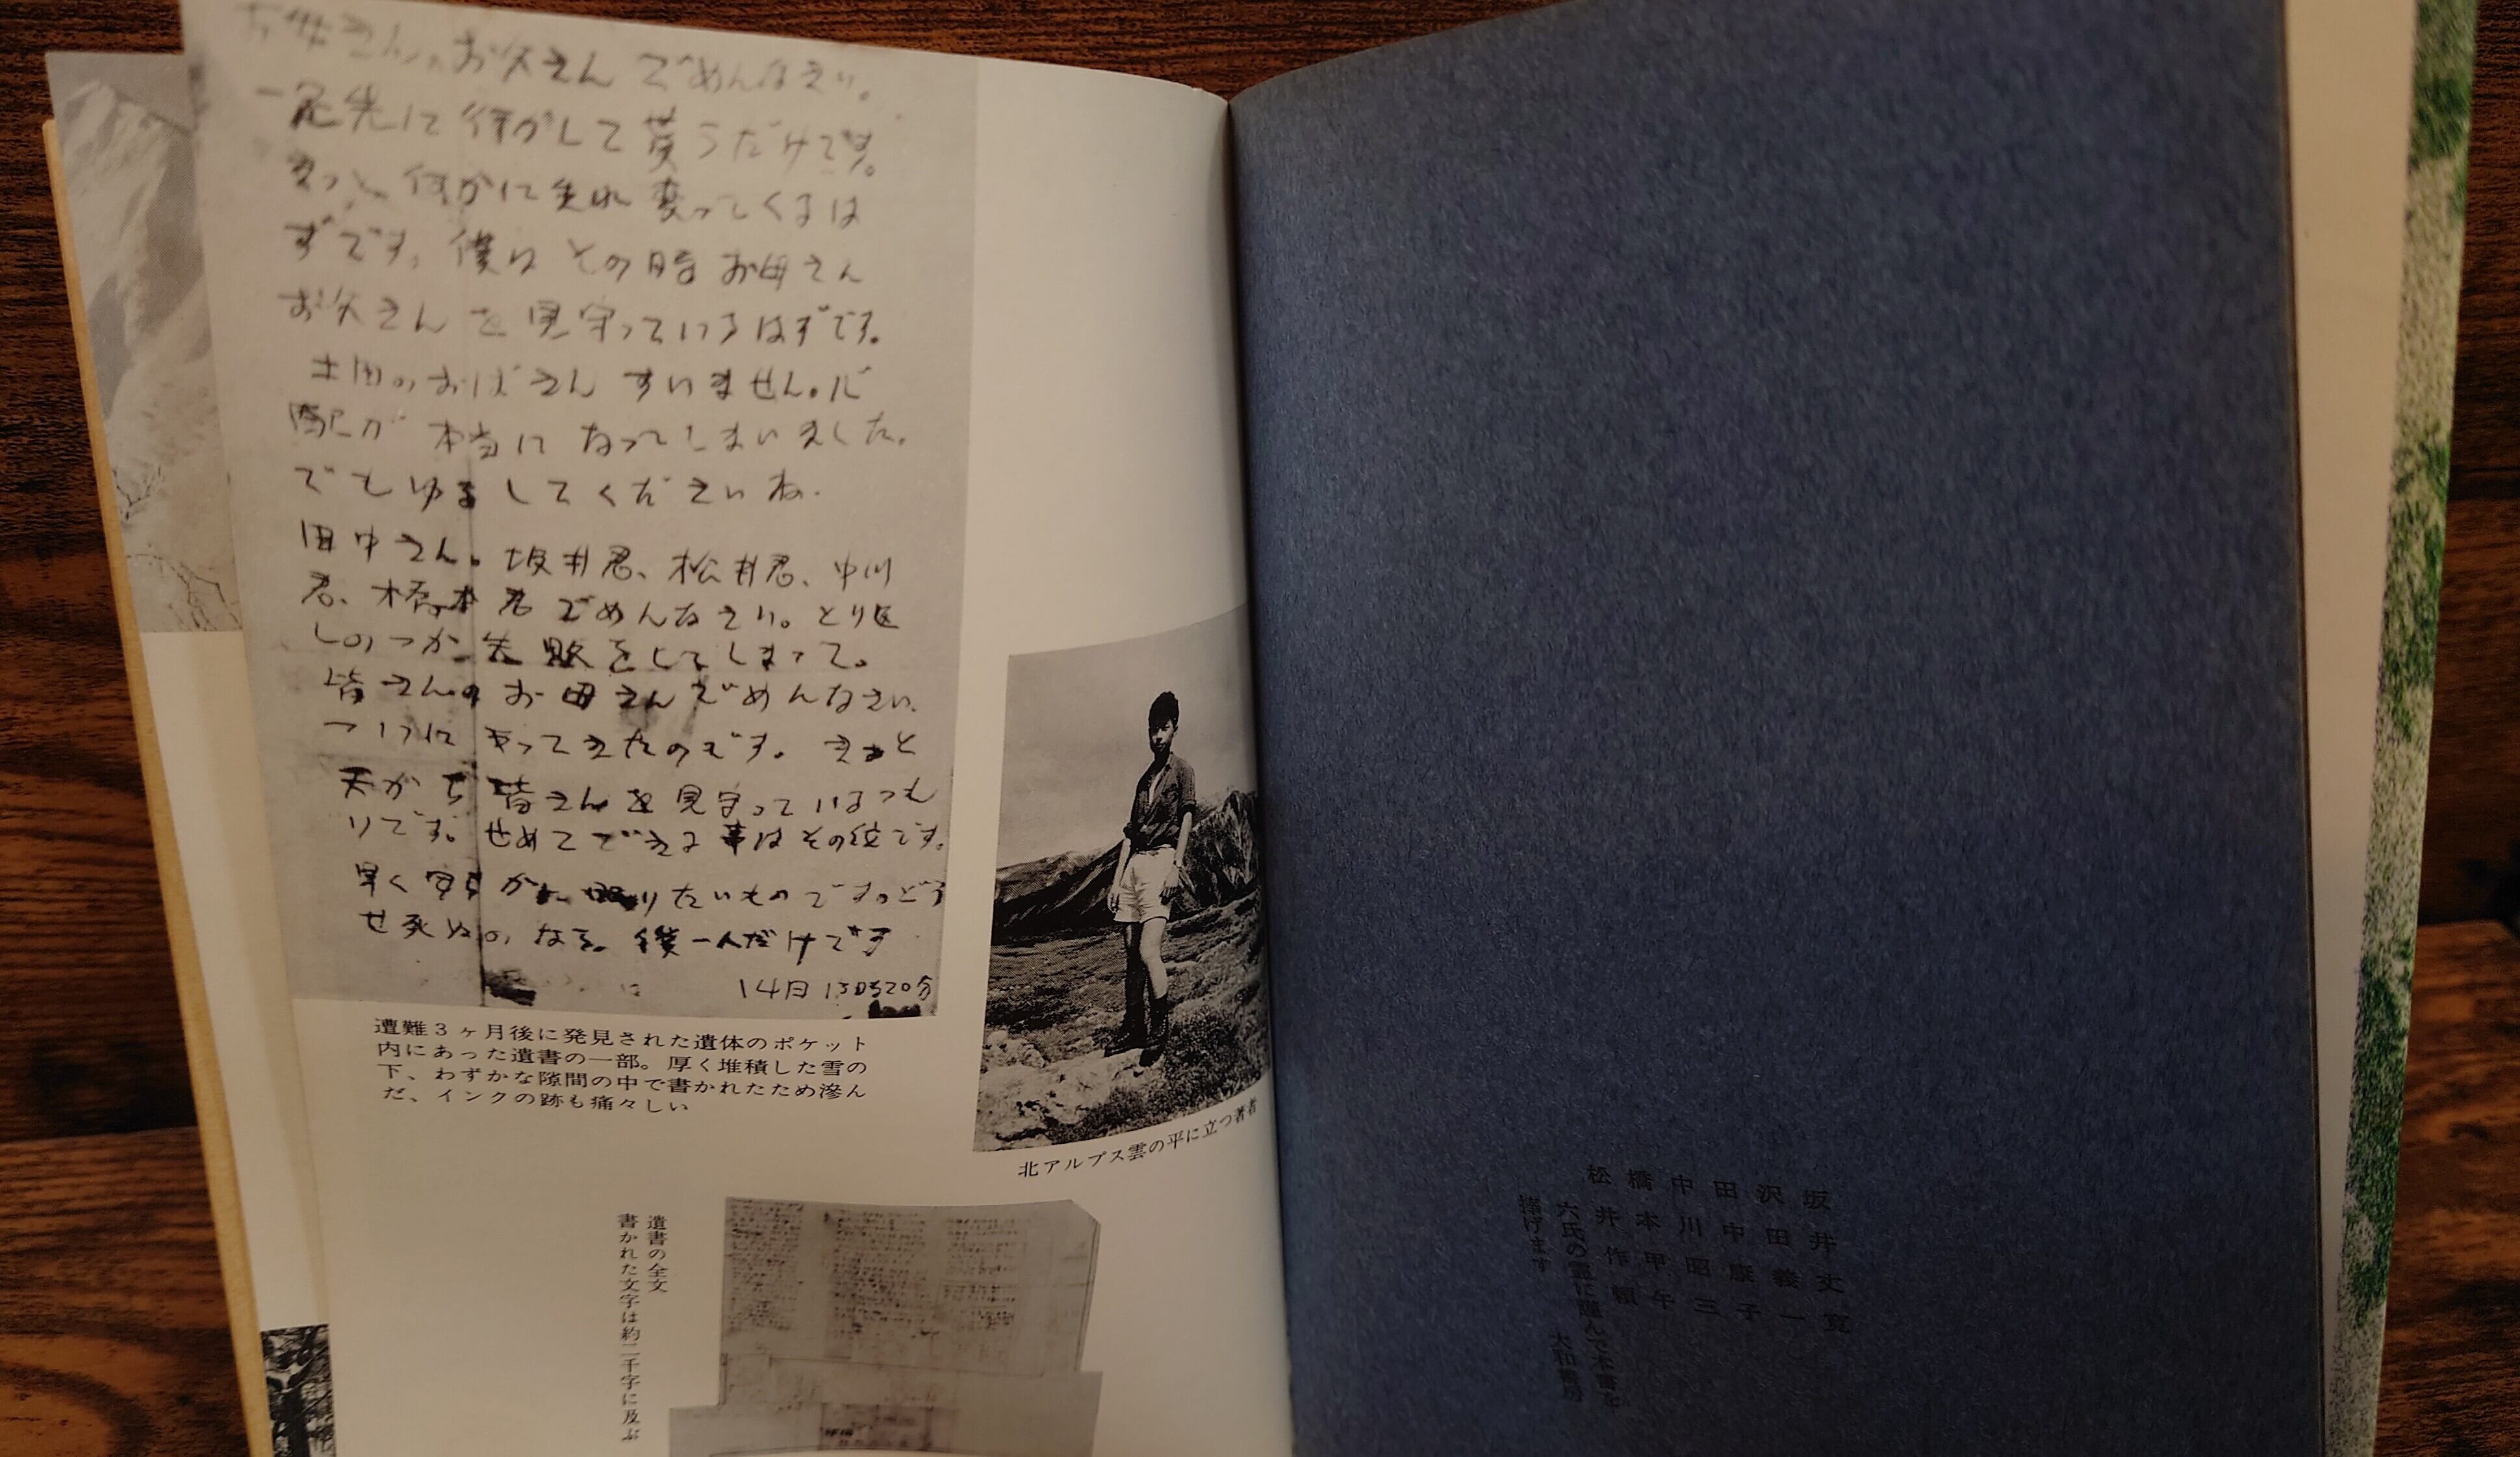 お母さん、お父さん ごめんなさい。
一足先に行かして貰うだけです。
きっと何かに生れ変ってくるは
ずです。僕はその時お母さん
お父さんを見守っているはずです。
土田のおばさんすいません。心
配が本当になってしまいました。
でもゆるしてくださいね。
田中さん。坂井君、松井君、中川
君、橋本君ごめんなさい。とり返
しのつかぬ失敗をしてしまって。
皆さんのお母さんごめんなさい。
ついにやってきたのです。きっと
天から皆さんを見守っているつも
りです。せめてできる事はその位です。
早く安らかに眠りたいものです。どう
せ死ぬのなら。僕一人だけです
14日13時20分
遭難3ヶ月後に発見された遺体のポケット
内にあった遺書の一部。厚く堆積した雪の
下、わずかな隙間の中で書かれたため滲ん
だ、インクの跡も痛々しい
北アルプス雲の平に立つ著者
遺書の全文
書かれた文字は約二千字に及ぶ
坂井丈寛
沢田義一
田中康子
中川昭三
橋本甲午
松井作頼
六氏の霊に謹んで本書を
捧げます
大和書房